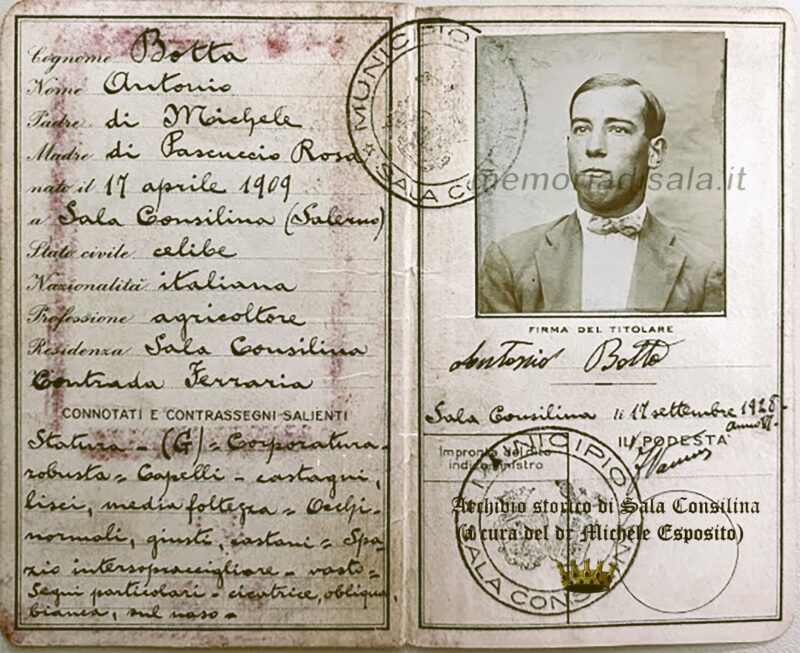 Cognome Botta
Nome Antonio
Padre di Michele
Madre di Pascuccio Rosa
nato il 17 aprile 1909
a Sala Consilina (Salerno)
Stato civile celibe
Nazionalità italiana
Professione agricoltore
Residenza Sala Consilina
Contrada Ferraria
CONNOTATI E CONTRASSEGNI SALIENTI
Statura - (G) = Corporatura
robusta = Capelli - castagni,
lisci, media foltezza = Occhi -
normali, giusti, castani = Spa
zio intersopraccigliare - vasto =
Segni particolari - cicatrice, obliqua,
bianca, sul naso -
MUNICIPIO
SALA CONSILINA
memoriadisala.it
FIRMA DEL TITOLARE
Antonio Botta
Sala Consilina li 17 settembre 1928
anno VI
IL PODESTÀ
Impronta del dito
indice sinistro
MUNICIPIO
SALA CONSILINA
Archivio storico di Sala Consilina
(a cura del dr Michele Esposito)